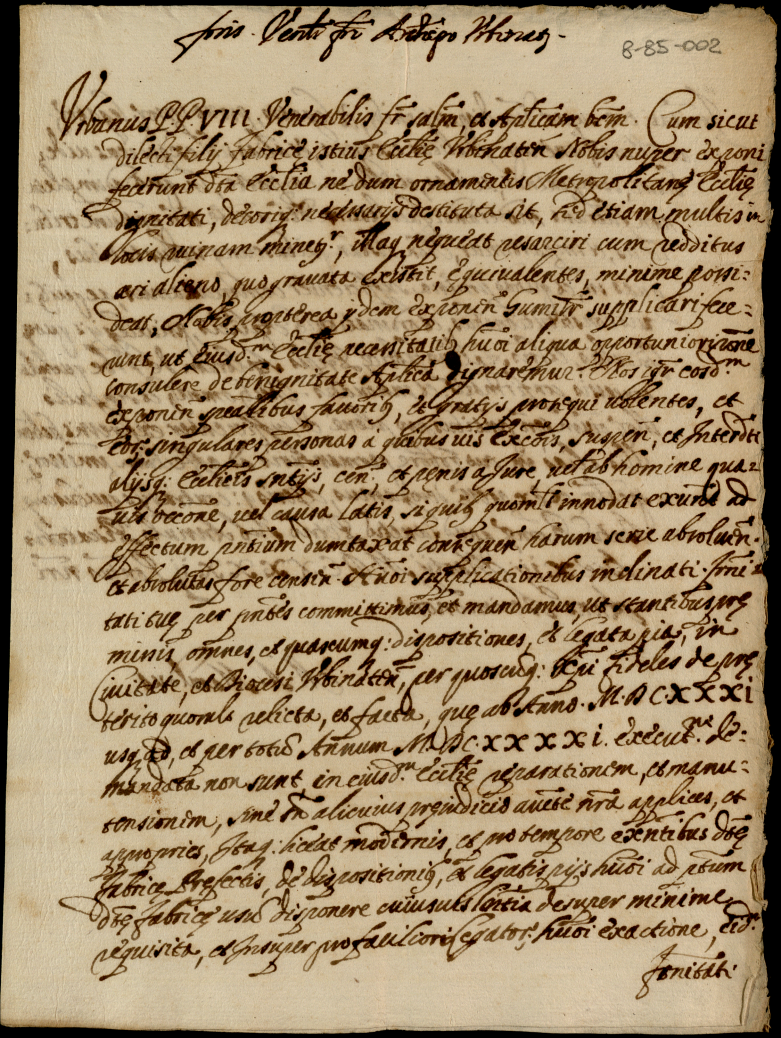 foris. Venli fri Archiepo Urbinaten.
8-85-002
Urbanus PP VIII. Venerabilis fr salm, et Aplicam bem. Cum sicut
dilecti filij fabricę istius Ecclię Urbinaten Nobis nuper exponi
fecerunt dta Ecclia ne dum ornamentis Metropolitanę Ecclię
dignitati, decoriq: necessarijs destituta sit, sed etiam multis in
locis ruinam minetr, illaq nequeat resarciri cum redditus
æri alieno, quo gravata existit, ęquivalentes, minime possi-
deat, Nobis propterea ydem exponen humilr supplicari fece-
runt, ut eiusd.m Ecclię necessitatib huoi aliqua opportuniori rone
consulere de benignitate Aplica dignaremur. Nos igr eosd.m
exponen spealibus favorib, et gratijs prosequi volentes, et
eor singulares personas a quibus vis excois, suspen, et Interdti
alijsq: Ecclicis sntijs, cen, et penis a Jure, vel ab homine qua-
vis occone, vel causa latis, si quib quomlt innodat exunt ad
effectum pntium dumtaxat consequen harum serie absolven.
et absolutas fore censen. Huoi supplicationibus inclinati. frni-
tati tuę per pntes committimus, et mandamus, ut stantibus prę
missis, omnes, et quascumq: dispositiones, et legata pia, in
Civitate, et Diocesi Urbinaten, per quoscuq: Xpi fideles de prę
terito quomlt relicta, et facta, quę ab Anno. M.DCXXXI
usq, ad, et per totu Annum M.DCXXXXI. execut.ni de-
mandata non sunt, in eiusd.m Ecclię reparationem, et manu-
tensionem, sine tn alicuius pręiudicio aucte nra applices, et
appropries, Itaq: liceat modernis, et pro tempore exntibus dtę
fabricę Prefectis, de dispositionib, et legatis pijs huoi ad ptum
dtę fabricę usu disponere cuiusvis lintia desuper minime
requisita, et Insuper pro faciliori legator huoi exactione, eid.m
frnitati